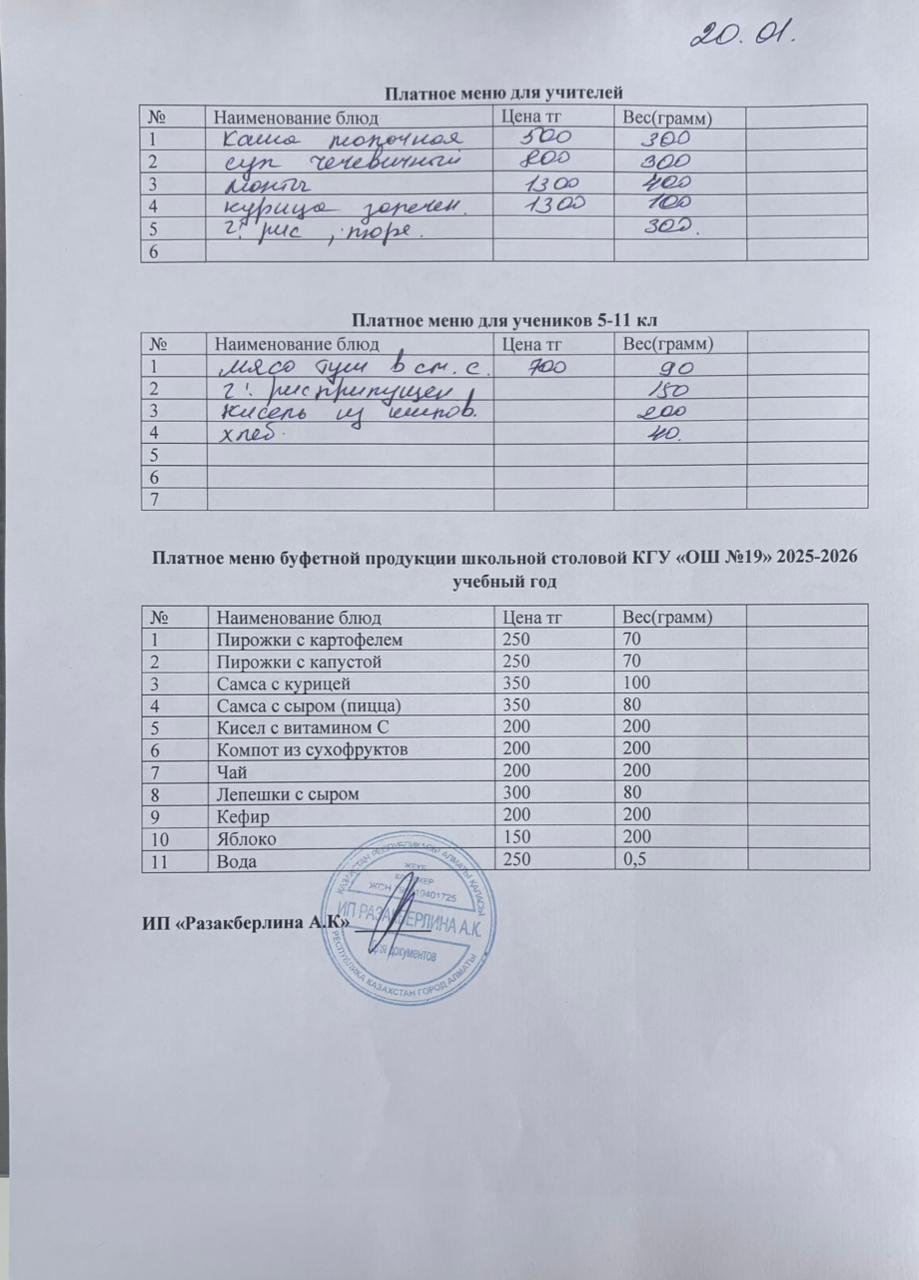 20.01.
Платное меню для учителей
№ Наименование блюд Цена тг Вес(грамм)
1 Каша молочная 500 300
2 суп чечевичный 800 300
3 манты 1300 400
4 курица запечен. 1300 100
5 г! рис, пюре. 300.
6
Платное меню для учеников 5-11 кл
№ Наименование блюд Цена тг Вес(грамм)
1 мясо туш в см. с. 700 90
2 г! рис припущен 150
3 кисель из шипов. 200
4 хлеб. 40.
5
6
7
Платное меню буфетной продукции школьной столовой КГУ «ОШ №19» 2025-2026
учебный год
№ Наименование блюд Цена тг Вес(грамм)
1 Пирожки с картофелем 250 70
2 Пирожки с капустой 250 70
3 Самса с курицей 350 100
4 Самса с сыром (пицца) 350 80
5 Кисел с витамином С 200 200
6 Компот из сухофруктов 200 200
7 Чай 200 200
8 Лепешки с сыром 300 80
9 Кефир 200 200
10 Яблоко 150 200
11 Вода 250 0,5
ИП «Разакберлина А.К»
ҚАЗАҚСТАН РЕСПУБЛИКАСЫ АЛМАТЫ ҚАЛАСЫ
ЖЕКЕ
ЖСН
ИП РАЗАКБЕРЛИНА А.К.
Для документов
РЕСПУБЛИКА КАЗАХСТАН ГОРОД АЛМАТЫ